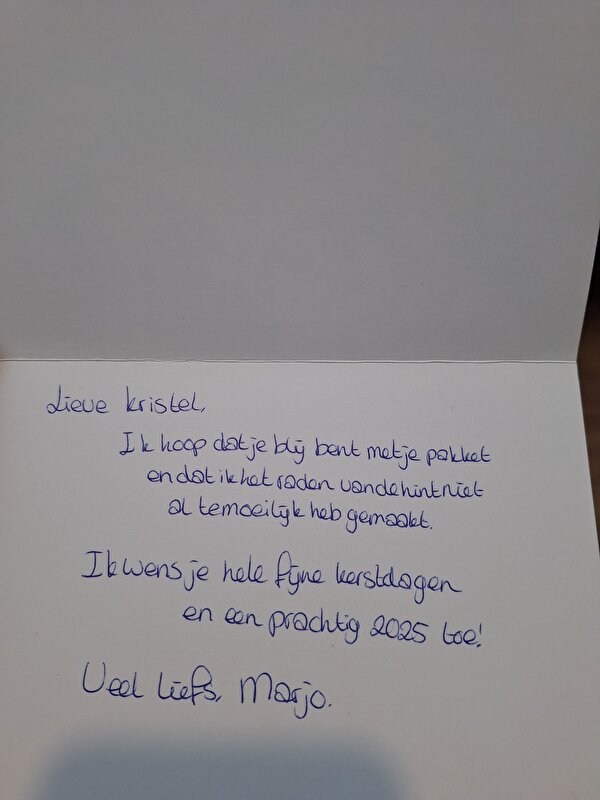 Lieve Kristel,
Ik hoop dat je blij bent met je pakket
en dat ik het raden van de hint niet
al te moeilijk heb gemaakt.
Ik wens je hele fijne kerstdagen
en een prachtig 2025 toe!
Veel liefs, Marjo.